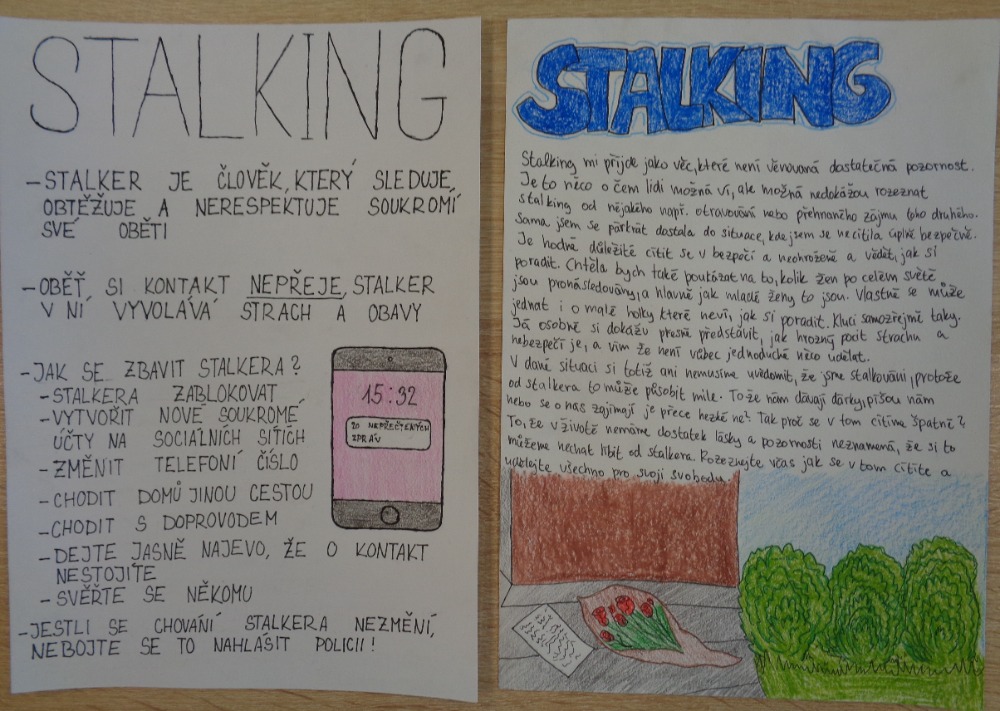 STALKING
-STALKER JE ČLOVĚK, KTERÝ SLEDUJE,
OBTĚŽUJE A NERESPEKTUJE SOUKROMÍ
SVÉ OBĚTI
-OBĚŤ SI KONTAKT NEPŘEJE, STALKER
V NÍ VYVOLÁVÁ STRACH A OBAVY
-JAK SE ZBAVIT STALKERA?
-STALKERA ZABLOKOVAT
-VYTVOŘIT NOVÉ SOUKROMÉ
ÚČTY NA SOCIÁLNÍCH SÍTÍCH
-ZMĚNIT TELEFONÍ ČÍSLO
-CHODIT DOMŮ JINOU CESTOU
-CHODIT S DOPROVODEM
-DEJTE JASNĚ NAJEVO, ŽE O KONTAKT
NESTOJÍTE
-SVĚŘTE SE NĚKOMU
-JESTLI SE CHOVÁNÍ STALKERA NEZMĚNÍ,
NEBOJTE SE TO NAHLÁSIT POLICII!
15:32
20 NEPŘEČTENÝCH
ZPRÁV
STALKING
Stalking mi přijde jako věc, které není věnovaná dostatečná pozornost.
Je to něco o čem lidi možná ví, ale možná nedokážou rozeznat
stalking od nějakého např. otravování nebo přehnaného zájmu toho druhého.
Sama jsem se párkrát dostala do situace, kde jsem se necítila úplně bezpečně.
Je hodně důležité cítit se v bezpečí a neohroženě a vědět, jak si
poradit. Chtěla bych také poukázat na to, kolik žen po celém světě
jsou pronásledovány, a hlavně jak mladé ženy to jsou. Vlastně se může
jednat i o malé holky které neví, jak si poradit. Kluci samozřejmě taky.
Já osobně si dokážu přesně představit, jak hrozný pocit strachu a
nebezpečí je, a vím že není vůbec jednoduché něco udělat.
V dané situaci si totiž ani nemusíme uvědomit, že jsme stalkováni, protože
od stalkera to může působit mile. To že nám dávají dárky, píšou nám
nebo se o nás zajímají je přece hezké ne? Tak proč se v tom cítíme špatně?
To, že v životě nemáme dostatek lásky a pozornosti neznamená, že si to
můžeme nechat líbit od stalkera. Rozeznejte včas jak se v tom cítíte a
udělejte všechno pro svoji svobodu.